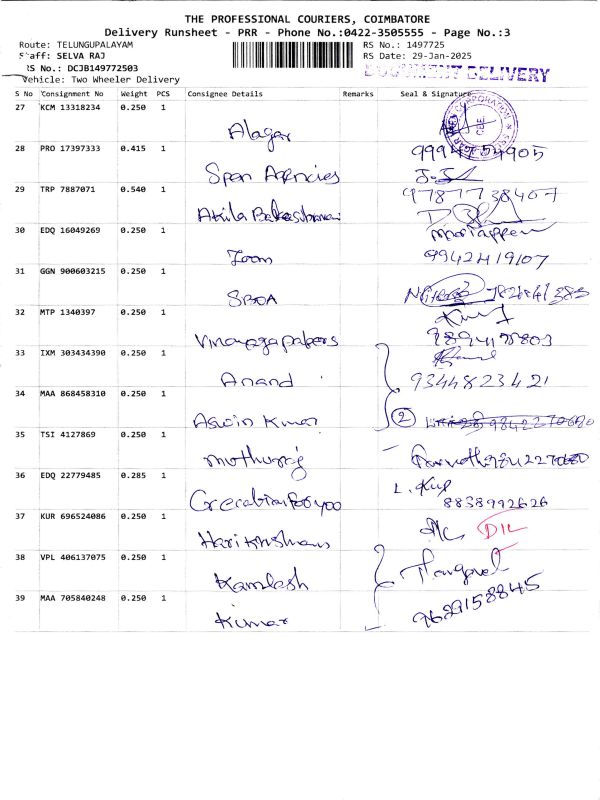 THE PROFESSIONAL COURIERS, COIMBATORE
Delivery Runsheet - PRR - Phone No.:0422-3505555 - Page No.:3
Route: TELUNGUPALAYAM
RS No.: 1497725
Staff: SELVA RAJ
RS Date: 29-Jan-2025
RS No.: DCJB149772503
DOCUMENT DELIVERY
Vehicle: Two Wheeler Delivery
S No Consignment No Weight PCS Consignee Details Remarks Seal & Signature
27 KCM 13318234 0.250 1
Alagar
28 PRO 17397333 0.415 1
Span Agencies
29 TRP 7887071 0.540 1
9787738407
Akila
30 EDQ 16049269 0.250 1
Mariappan
Zoom 9942419107
31 GGN 900603215 0.250 1
SBOA
32 MTP 1340397 0.250 1
Vinayagapapers
33 IXM 303434390 0.250 1
Anand 9344823421
34 MAA 868458310 0.250 1
Aswin Kumar 2
35 TSI 4127869 0.250 1
Mothuraj
36 EDQ 22779485 0.285 1
8838992626
37 KUR 696524086 0.250 1
D/L
Harikrishnans
38 VPL 406137075 0.250 1
Kamlesh
39 MAA 705840248 0.250 1
Kumar 9629158845